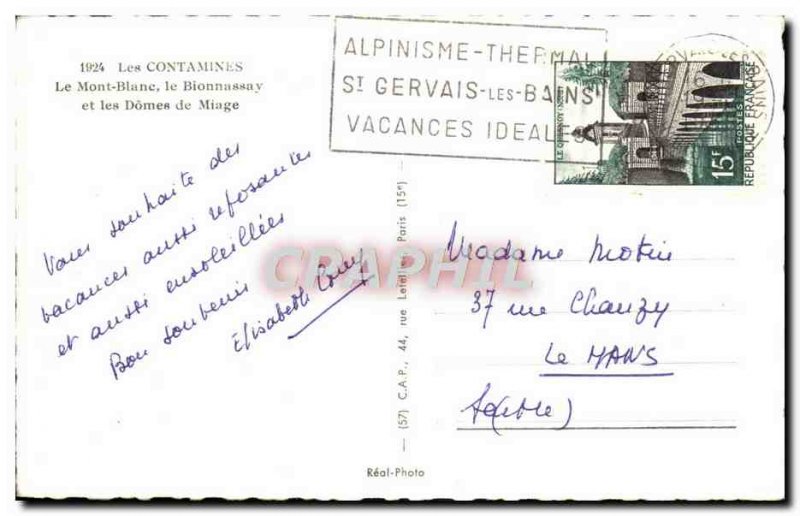 1924 Les CONTAMINES
Le Mont-Blanc, le Bionnassay
et les Dômes de Miage
ALPINISME-THERMAL
ST GERVAIS-LES-BAINS
VACANCES IDEALES
LE QUESNOY (NORD)
15F
POSTES
REPUBLIQUE FRANÇAISE
Vous souhaite des
vacances aussi reposantes
et aussi ensoleillées
Bon souvenir
Elisabeth
CRAPHIL
(57) C.A.P., 44, rue Letellier, Paris (15e)
Madame Motin
37 rue Chanzy
Le MANS
(Sarthe)
Réal-Photo